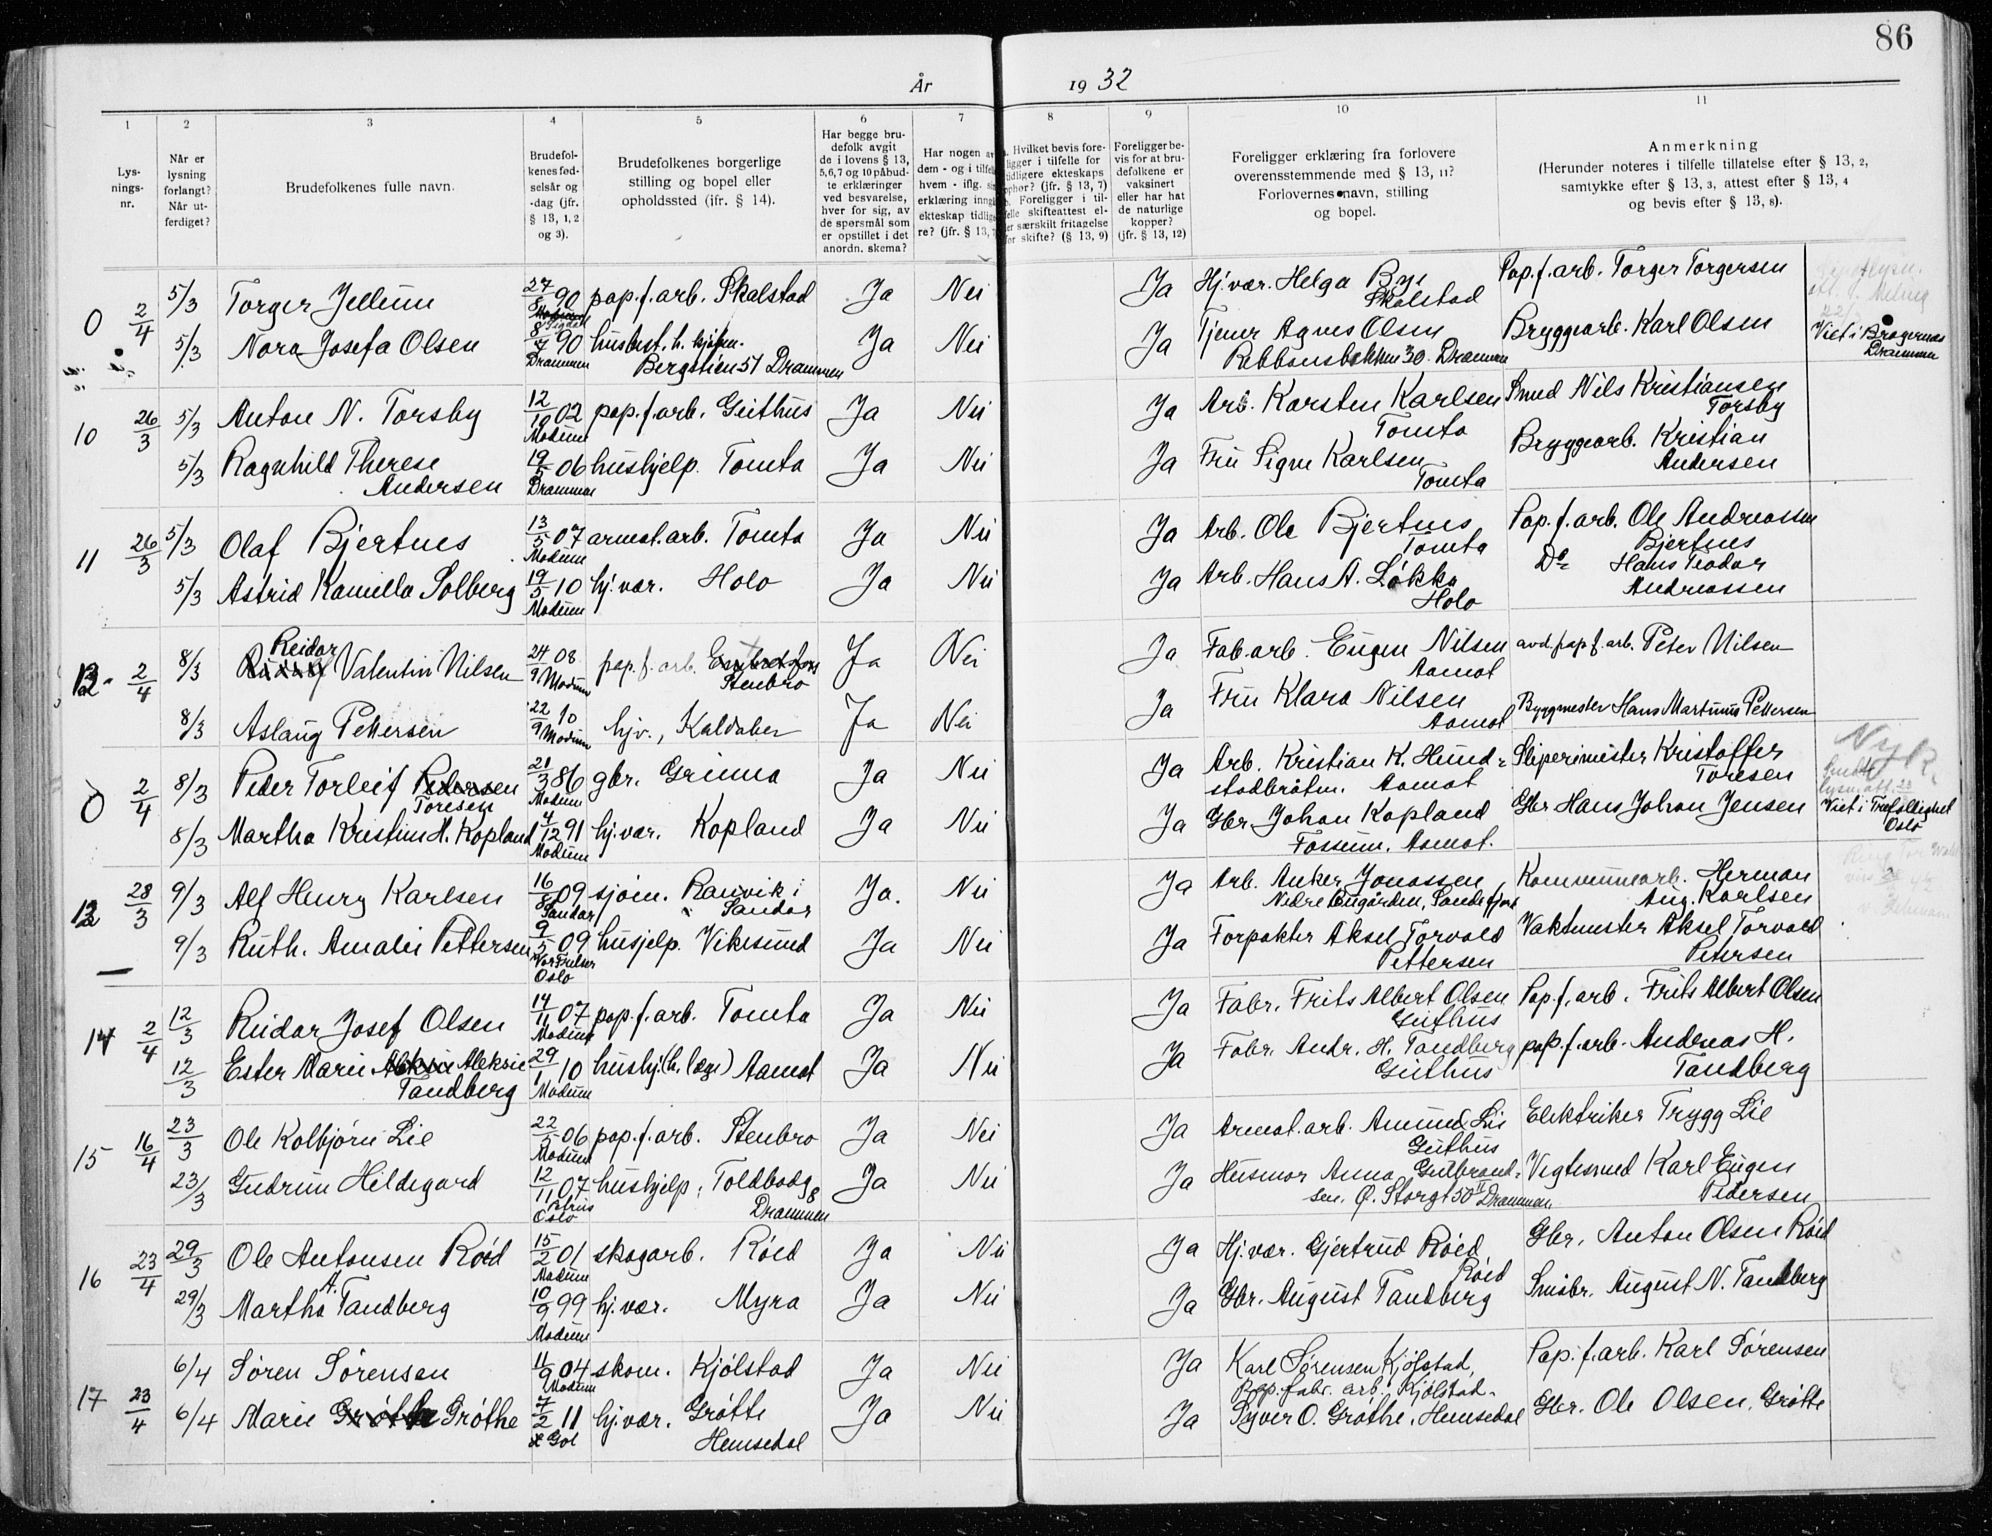 86
År 1932
1 2 3 4 5 6 7 8 9 10 11
Lys-
nings-
nr.
Når er
lysning
forlangt?
Når ut-
ferdiget?
Brudefolkenes fulle navn.
Brudefol-
kenes fød-
selsår og
-dag (jfr.
§ 13, 1, 2
og 3).
Brudefolkenes borgerlige
stilling og bopel eller
opholdssted (jfr. § 14).
Har begge bru-
defolk avgit
de i lovens § 13,
5,6,7 og 10 påbud-
te erklæringer
ved besvarelse,
hver for sig, av
de spørsmål som
er opstillet i det
anordn. skema?
Har nogen av
dem - og i tilfelle
hvem - iflg. sin
erklæring inngått
ekteskap tidlige-
re? (jfr. § 13, 7)
a. Hvilket bevis fore-
ligger i tilfelle for
tidligere ekteskaps
ophør? (jfr. § 13, 7)
b. Foreligger i til-
felle skifteattest el-
ler særskilt fritagelse
for skifte? (§ 13, 9)
Foreligger be-
vis for at bru-
defolkene er
vaksinert
eller har hat
de naturlige
kopper?
(jfr. § 13, 12)
Foreligger erklæring fra forlovere
overensstemmende med § 13, 11?
Forlovernes navn, stilling
og bopel.
Anmerkning
(Herunder noteres i tilfelle tillatelse efter § 13, 2,
samtykke efter § 13, 3, attest efter § 13, 4
og bevis efter § 13, 8).
0 2/4 5/3 Torger Jellum 27/8 90 pap.f.arb. Skalstad Ja Nei Ja Hj.vær. Helga Bye Skalstad Pap.f.arb. Torger Torgersen
Sigdal
5/3 Nora Josefa Olsen 8/7 90 Drammen husbest. h. hjem. Bergstien 51 Drammen Ja Nei Ja Tjener Agnes Olsen Bryggearb. Karl Olsen
Rebbansbakken 30. Drammen
Viet i Bragernes
Drammen
10 26/3 5/3 Anton N. Torsby 12/10 02 Modum pap.f.arb. Geithus Ja Nei Ja Arb. Karsten Karlsen Tomta Smed Nils Kristiansen Torsby
5/3 Ragnhild Therese Andersen 19/5 06 Drammen hushjelp. Tomta Ja Nei Ja Fru Signe Karlsen Tomta Bryggearb. Kristian Andersen
11 26/3 5/3 Olaf Bjertnes 13/5 07 Modum armat.arb. Tomta Ja Nei Ja Arb. Ole Bjertnes Tomta Pap.f.arb. Ole Andreassen Bjertnes
5/3 Astrid Kamilla Solberg 19/5 10 Modum hj.vær. Holo Ja Nei Ja Arb. Hans A. Løkka Holo Do Hans Teodor Andreassen
12 2/4 8/3 Reidar Valentin Nilsen 24/9 08 Modum pap.f.arb. Embretsfos Stenbro Ja Nei Ja Fab.arb. Eugen Nilsen Aamot avd.pap.f.arb. Peter Nilsen
8/3 Aslaug Pettersen 22/9 10 Modum hjv., Kaldaker Ja Nei Ja Fru Klara Nilsen Aamot Byggmester Hans Martinus Pettersen
0 2/4 8/3 Peder Torleif Pedersen Toresen 21/3 86 Modum gbr. Grinna Ja Nei Ja Arb. Kristian K. Hund-
stadbråtm. Aamot Sliperimester Kristoffer Toresen
8/3 Martha Kristine H. Kopland 4/12 91 Modum hj.vær. Kopland Ja Nei Ja Gbr. Johan Kopland Fossum. Aamot. Gbr Hans Johan Jensen
Viet i Trefoldighet
Oslo
13 28/3 9/3 Alf Henry Karlsen 16/8 09 Sandar sjøm. Ranvik i Sandar Ja. Nei Ja Arb. Anker Jonassen, Nedre Bugården, Sandefjord Kommunearb. Herman Aug. Karlsen
9/3 Ruth. Amalie Pettersen 9/5 09 Vor Frelser Oslo husjelp. Vikesund Ja Nei Ja Forpakter Aksel Torvald Pettersen Vaktmester Aksel Torvald Petersen
14 2/4 12/3 Reidar Josef Olsen 14/11 07 Modum pap.f.arb. Tomta Ja Nei Ja Fabr. Frits Albert Olsen Geithus Pap.f.arb. Frits Albert Olsen
12/3 Ester Marie Aleksie Tandberg 29/1 10 Modum hushj.(h. læge) Aamot Ja Nei Ja Fabr. Andr. H. Tandberg Geithus pap.f.arb. Andreas H. Tandberg
15 16/4 23/3 Ole Kolbjørn Lie 22/5 06 Modum pap.f.arb. Stenbro Ja Nei Ja Armat.arb. Amund Lie Geithus Elektriker Trygg Lie
23/3 Gudrun Hildegard 12/11 07 Petrus Oslo hushjelp, Toldbodg 8 Drammen Ja Nei Ja Husmor Anna Gulbrand-
sen. Ø. Storgt 50 II Drammen Vegtesmed Karl Eugen Pedersen
16 23/4 29/3 Ole Antonsen Røed 15/2 01 Modum skogarb. Røed Ja Nei Ja Hj.vær. Gjertrud Røed, Røed Gbr. Anton Olsen Røed
29/3 Martha A. Tandberg 10/9 99 Modum hj.vær. Myra Ja Nei Ja Gbr. August Tandberg Småbr. August N. Tandberg
17 23/4 6/4 Søren Sørensen 11/9 04 Modum skom. Kjølstad Ja Nei Ja Karl Sørensen Kjølstad, Pap.fabr. arb., Kjølstad. Pap.f.arb. Karl Sørensen
6/4 Marie Grøthe 7/2 11 Gol hj.vær. Grøtte Hemsedal Ja Nei Ja Syver O. Grøthe, Hemsedal Gbr. Ole Olsen, Grøtte